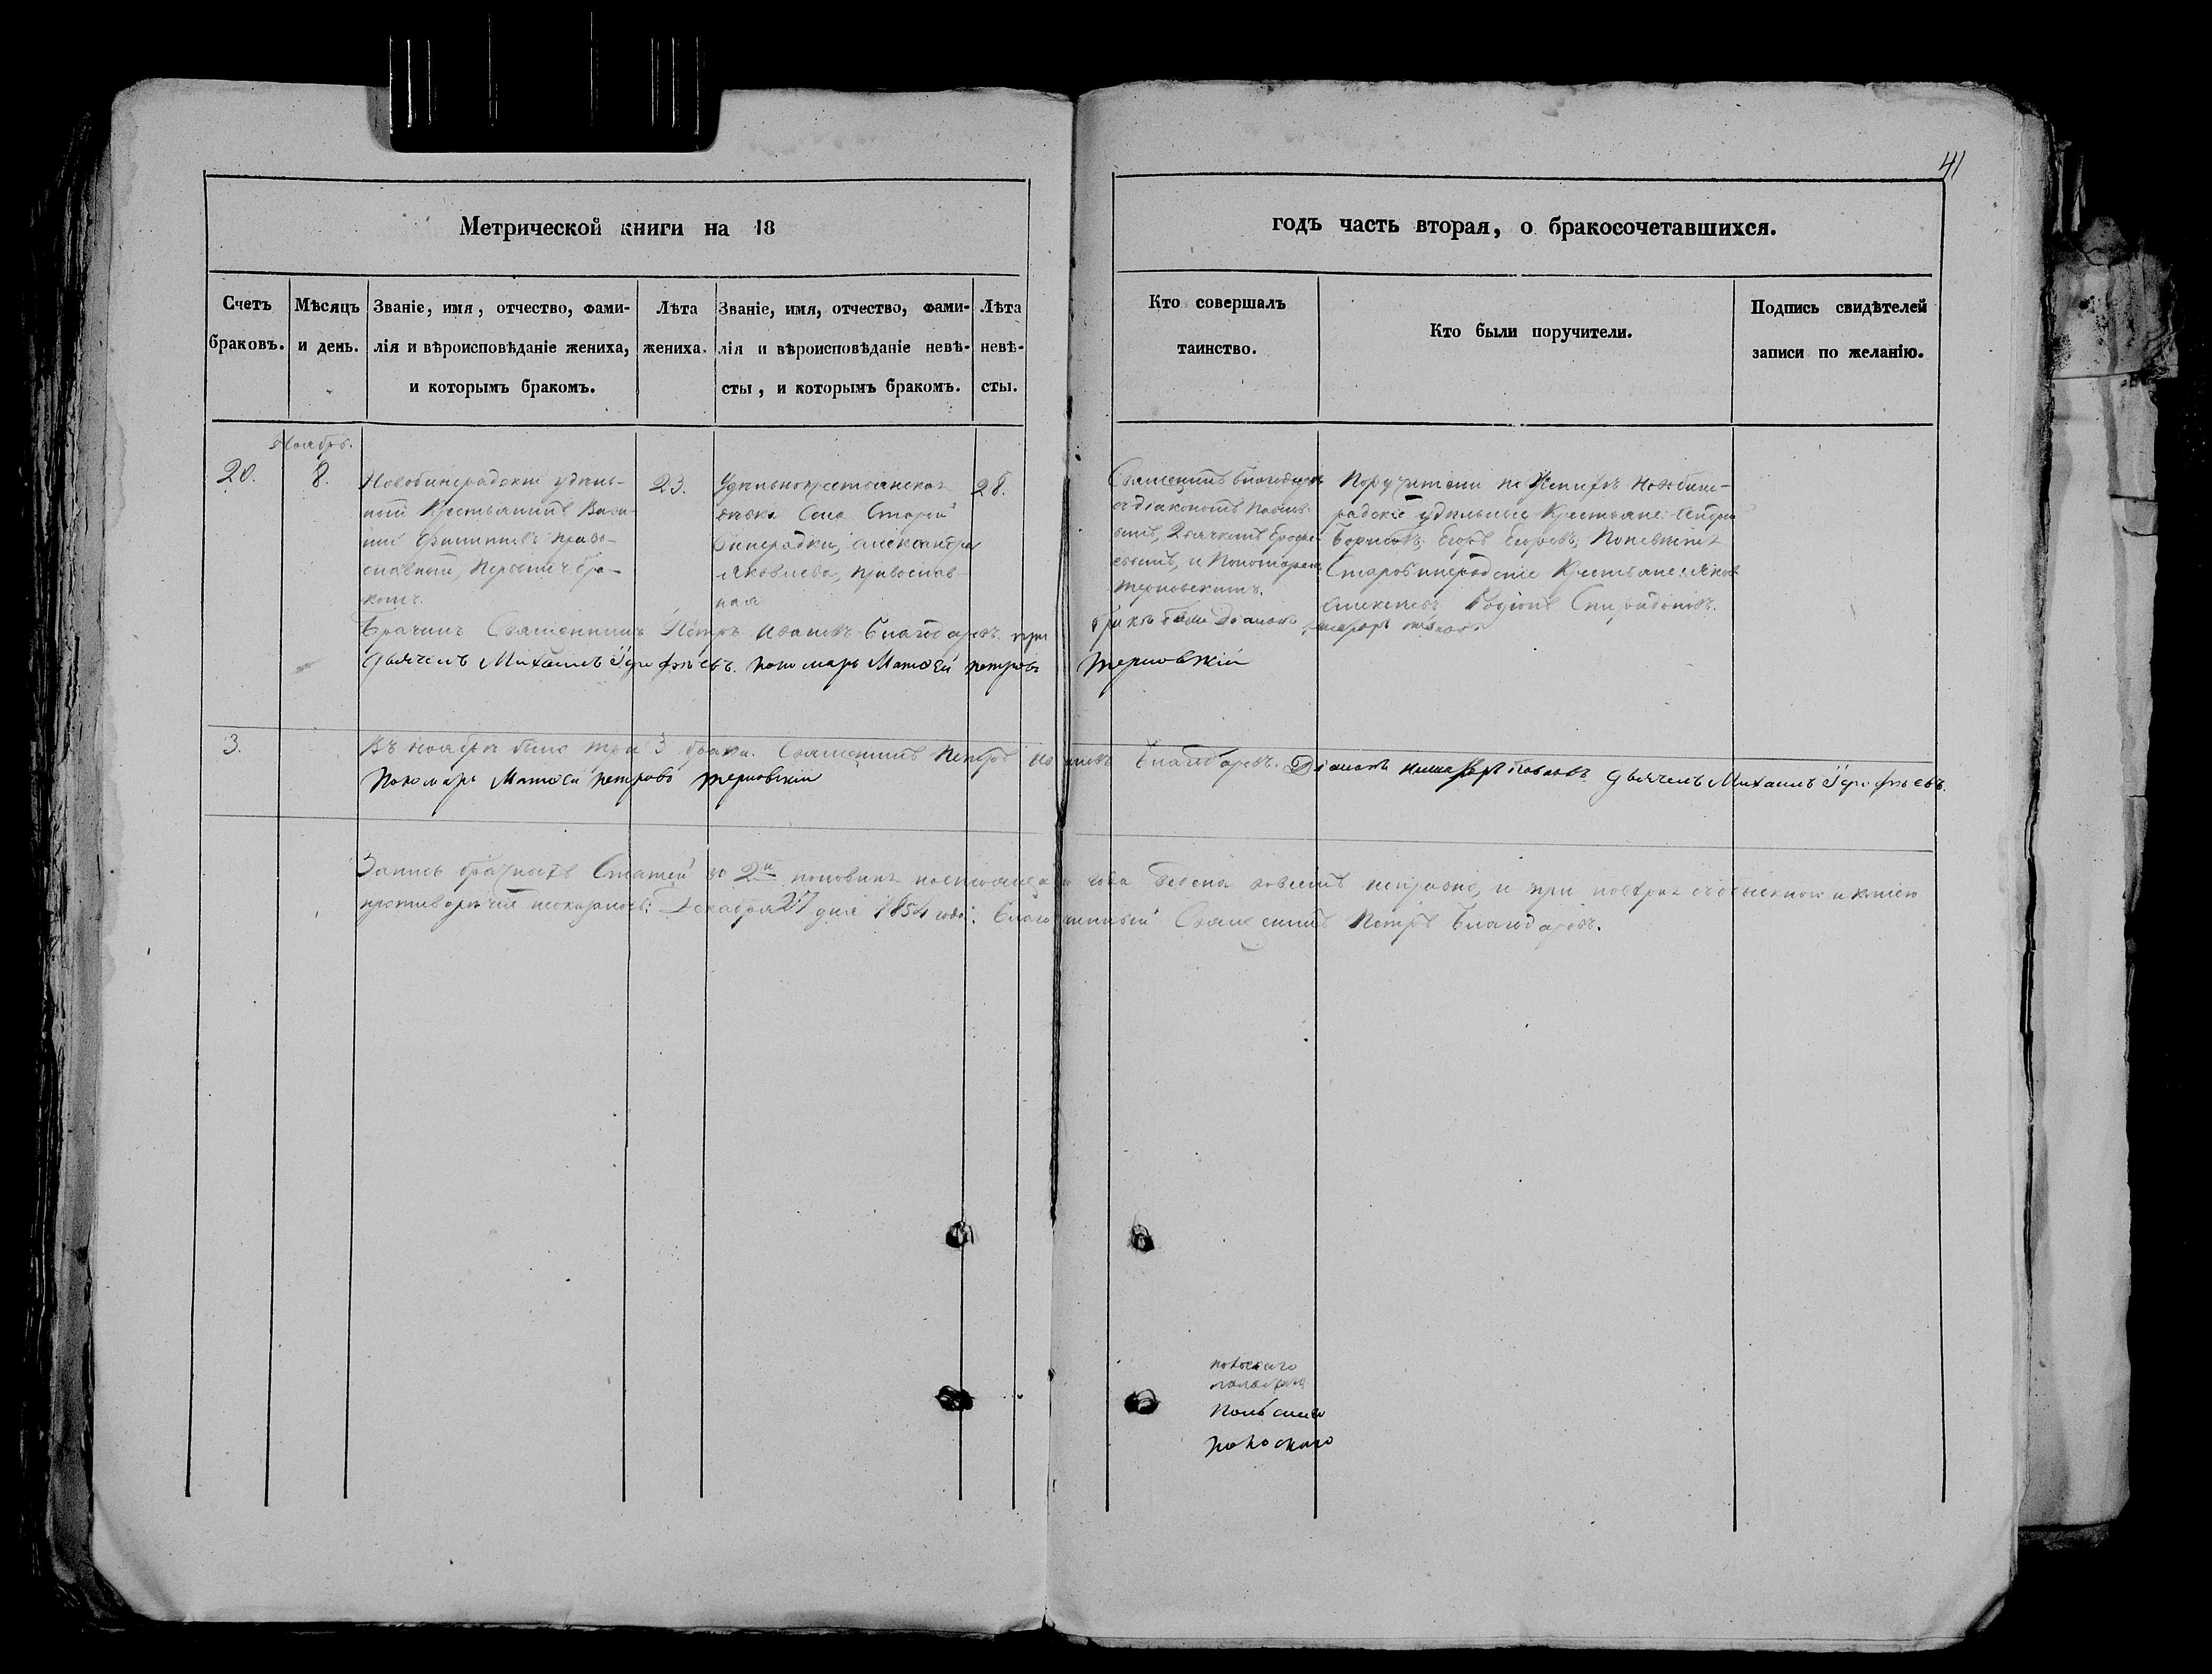 41
Метрической книги на 18
годъ часть вторая, о бракосочетавшихся.
Счетъ браковъ.
Мѣсяцъ и день.
Званіе, имя, отчество, фами-
лія и вѣроисповѣданіе жениха,
и которымъ бракомъ.
Лѣта
жениха.
Званіе, имя, отчество, фами-
лія и вѣроисповѣданіе невѣ-
сты, и которымъ бракомъ.
Лѣта
невѣ-
сты.
Кто совершалъ
таинство.
Кто были поручители.
Подпись свидѣтелей
записи по желанію.
Ноябрь.
20.
8.
Новобинарадскій удѣль-
ный Крестьянинъ Васи-
лій Филиповъ право-
славный, Первымъ бра-
комъ.
23.
Удѣльнокрестьянская
Села Старой
Бинарадки, Александра
Яковлева, православ-
ная
28.
Священникъ Благодаровъ
съ діакономъ Павло-
вымъ, Дьячкомъ Ерофе-
евымъ, и Пономаремъ
Терновскимъ.
Поручители по Женихѣ Новобина-
радскіе удѣльные Крестьяне:
Борисовъ, Егоръ Егоровъ, По невѣстѣ
Старобинарадскіе Крестьяне: Яковъ
Алексѣевъ Родіонъ Спиридоновъ.
Бракъ Священникъ Петръ Ивановъ Благодаровъ при
бракѣ были Діаконъ Никифоръ Павловъ
дьячекъ Михаилъ Ерофѣевъ. пономарь Матвей петровъ Терновскій
3.
Въ ноябрѣ было три 3 брака. Священникъ Петръ Ивановъ Благодаровъ. Діаконъ Никифоръ Павловъ дьячекъ Михаилъ Ерофѣевъ.
Пономарь Матвей петровъ терновскій
Запись брачныхъ Статей во 2й половинѣ настоящаго года ведена исправно, и при повѣркѣ съ обыскною и копіею
противорѣчій неоказалось: Декабря 27 дня 1854 года. Благочинный Священникъ Петръ Благодаровъ.